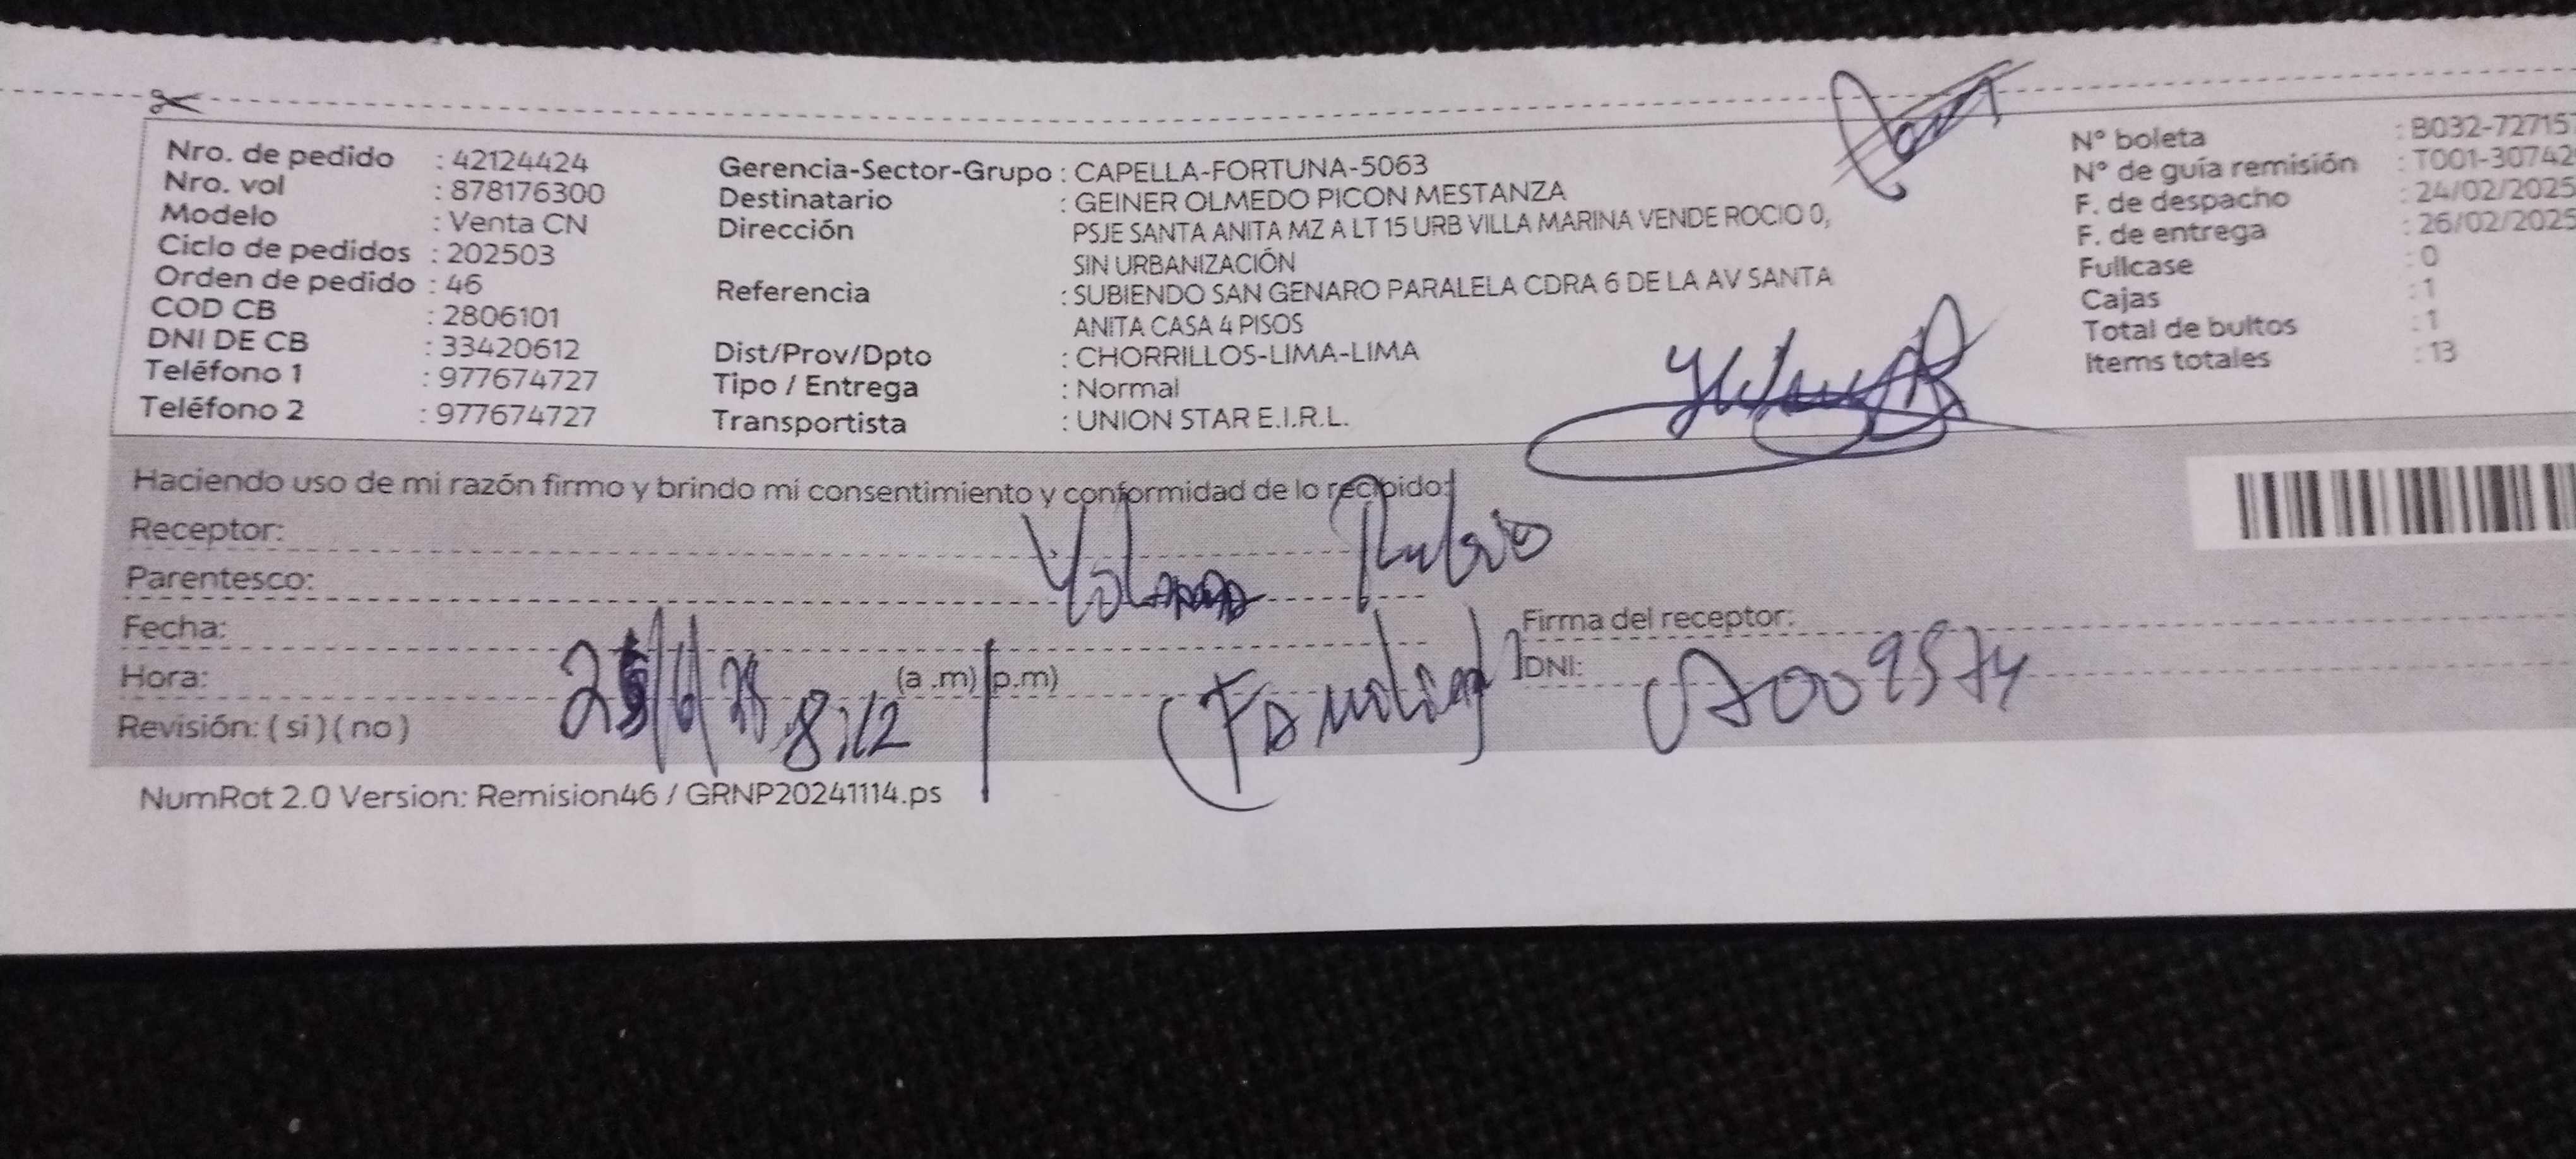 Nro. de pedido : 42124424
Nro. vol : 878176300
Modelo : Venta CN
Ciclo de pedidos : 202503
Orden de pedido : 46
COD CB : 2806101
DNI DE CB : 33420612
Teléfono 1 : 977674727
Teléfono 2 : 977674727
Gerencia-Sector-Grupo : CAPELLA-FORTUNA-5063
Destinatario : GEINER OLMEDO PICON MESTANZA
Dirección PSJE SANTA ANITA MZ A LT 15 URB VILLA MARINA VENDE ROCIO 0,
SIN URBANIZACIÓN
Referencia : SUBIENDO SAN GENARO PARALELA CDRA 6 DE LA AV SANTA
ANITA CASA 4 PISOS
Dist/Prov/Dpto : CHORRILLOS-LIMA-LIMA
Tipo / Entrega : Normal
Transportista : UNION STAR E.I.R.L.
N° boleta : B032-72715
N° de guía remisión : T001-30742
F. de despacho : 24/02/2025
F. de entrega : 26/02/2025
Fullcase : 0
Cajas : 1
Total de bultos : 1
Items totales : 13
Haciendo uso de mi razón firmo y brindo mi consentimiento y conformidad de lo recibido:
Receptor:
Parentesco: Rubio
Fecha: Firma del receptor:
Hora: 8:12 (a .m) (p.m) (Familiar) DNI:
Revisión: ( si ) ( no )
NumRot 2.0 Version: Remision46 / GRNP20241114.ps